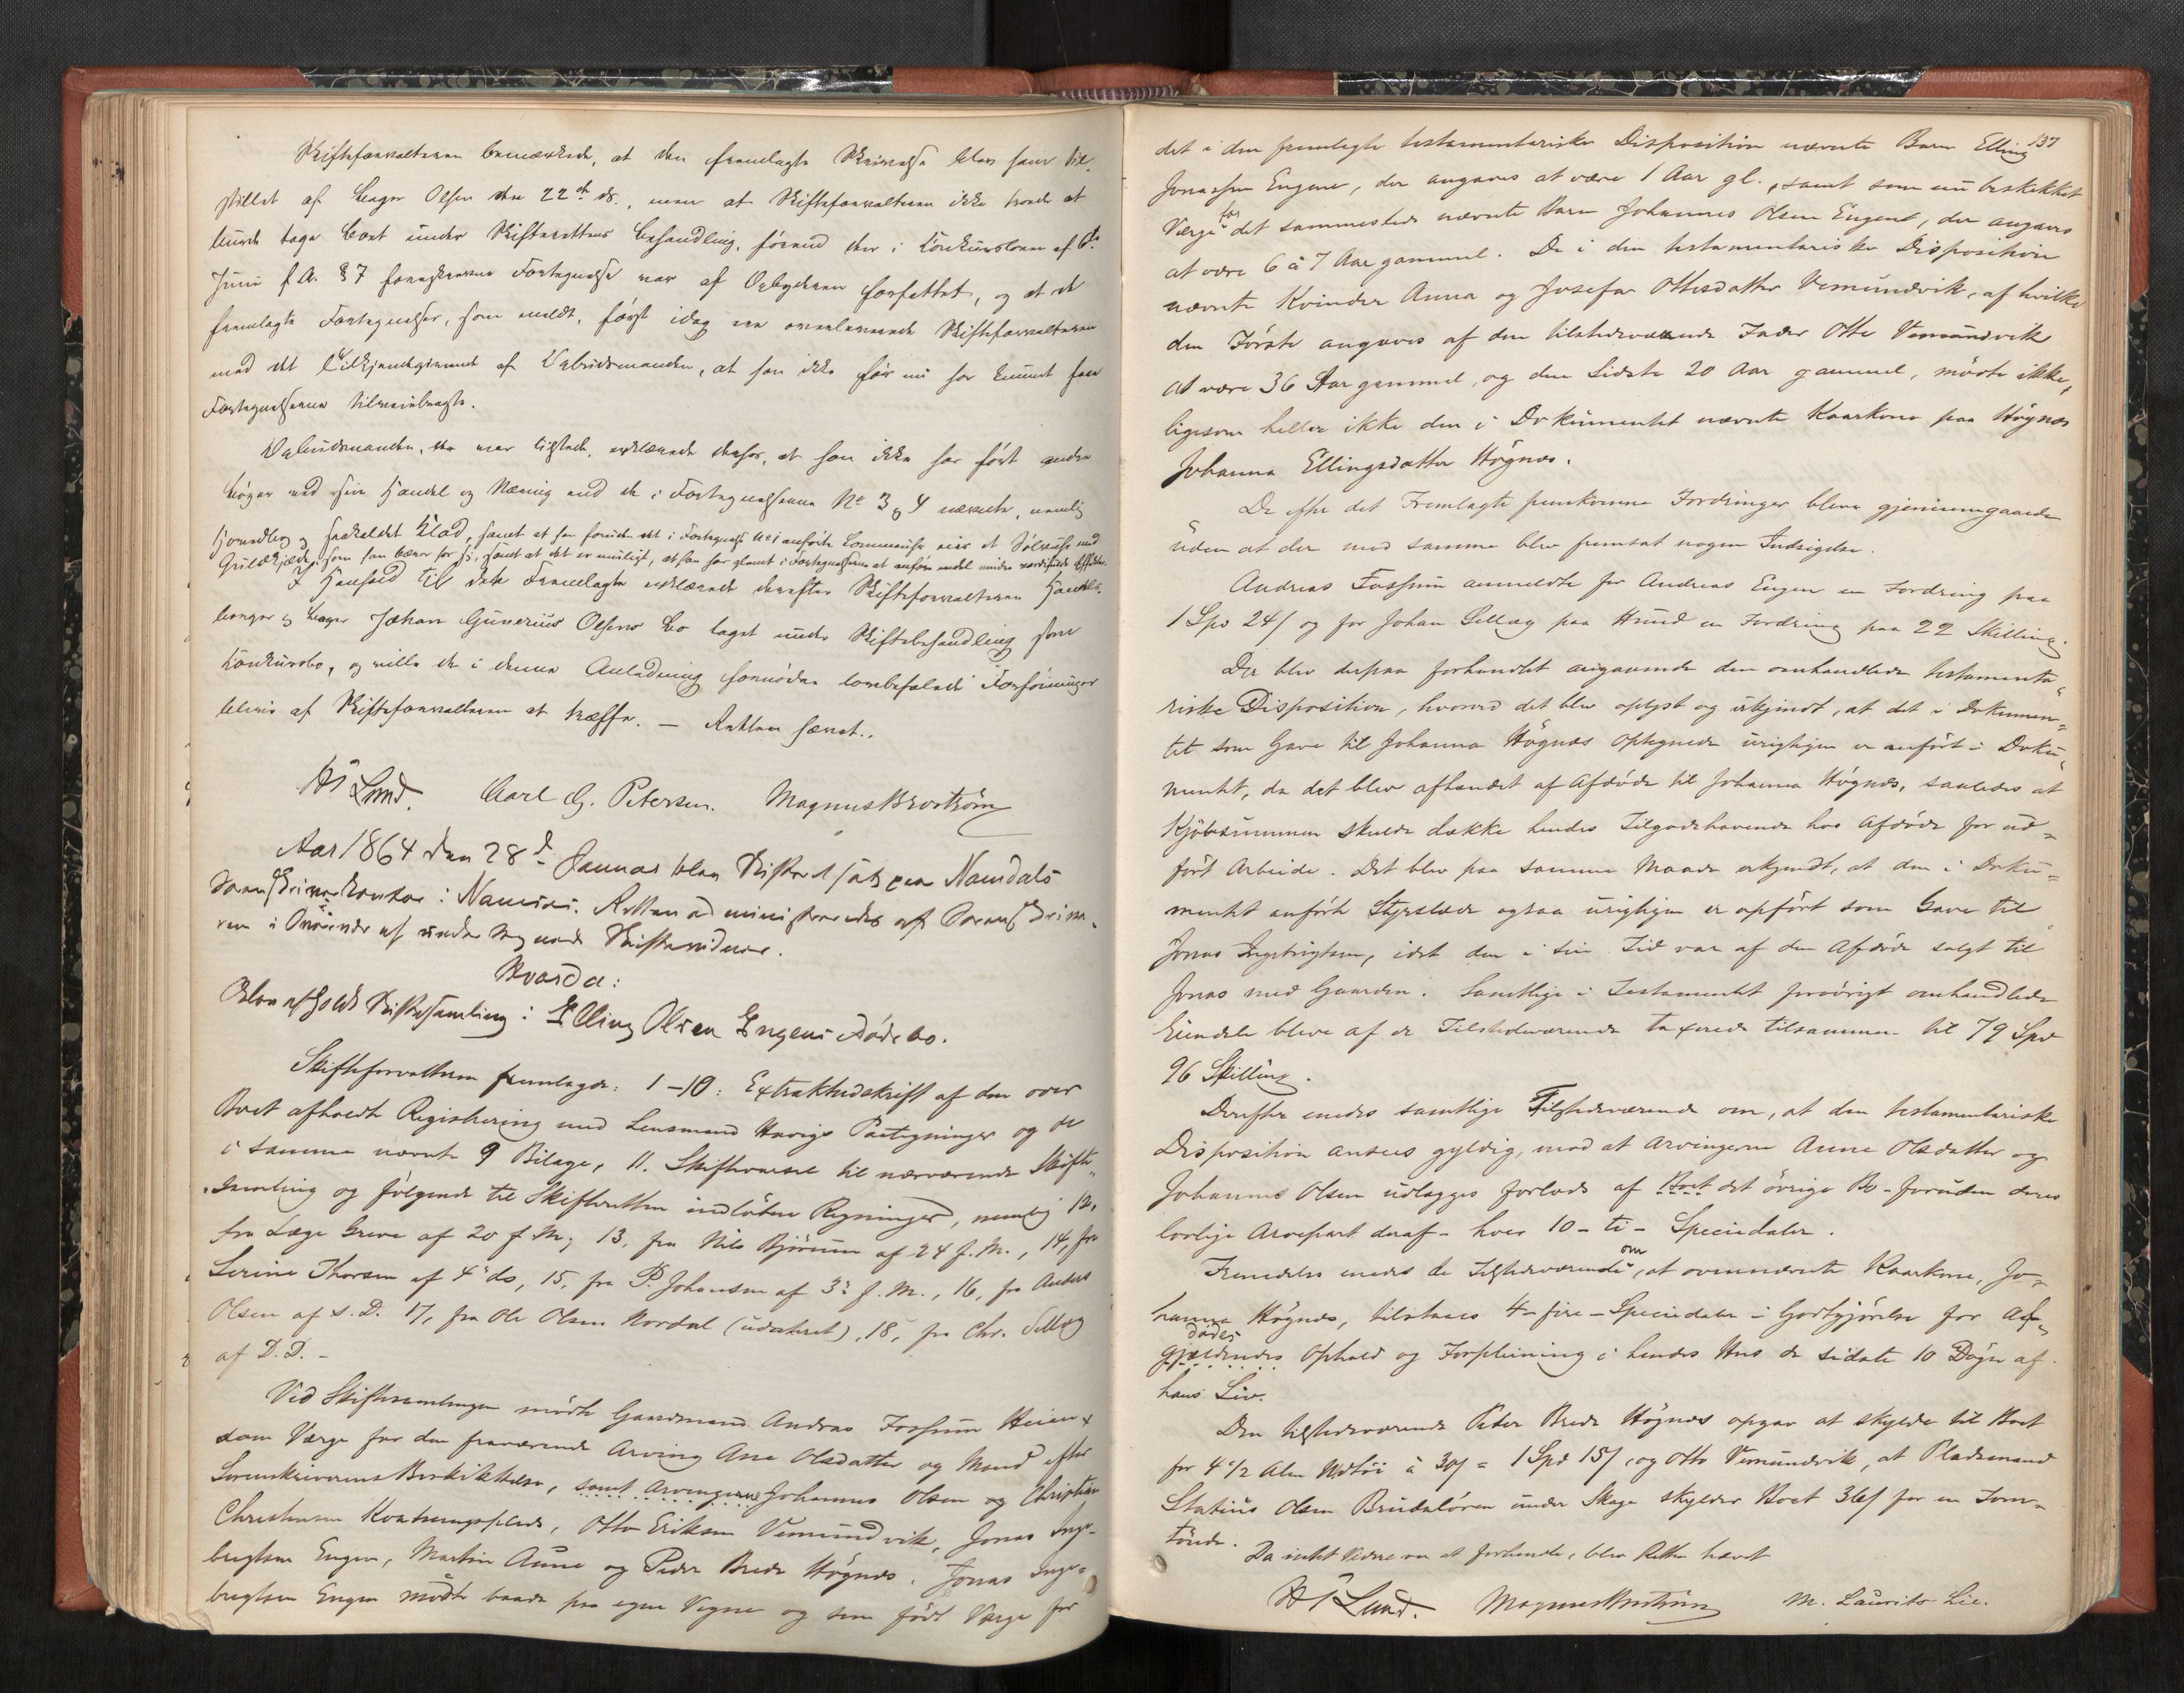 Skifteforvalteren bemærkede, at den fremlagte Skrivelse blev ham til-
stillet af Bager Olsen den 22de ds., men at Skifteforvalteren ikke troede at
burde tage Boet under Skifterettens Behandling, førend den i Konkursloven af 6te
Juni f. A. § 7 foreskrevne Fortegnelse var af Opbyderen forfattet, og at de
fremlagte Fortegnelser, som meldt, først idag ere overleverede Skifteforvalteren
med det Tilkjendegivende af Opbudsmanden, at han ikke før nu har kunnet faae
Fortegnelserne tilveiebragte.
Opbudsmanden, der var tilstede, erklærede derhos, at han ikke har ført andre
Bøger ved sin Handel og Næring end de i Fortegnelserne No 3 og 4 nævnte, nemlig
Hovedbog og saakaldet Klad, samt at han foruden det i Fortegnelse No 1 anførte eier et Sølvuhr med
som han bærer paa sig, samt at det er muligt, at han har glemt i Fortegnelserne at anføre endel mindre værdifulde Effekter.
I Henhold til dette Fremlagte erklærede derefter Skifteforvalteren Handels-
borger og Bager Johan Gunerius Olsens Bo taget under Skiftebehandling som
Konkursbo, og ville de i denne Anledning fornødne lovbefalede Forføininger
blive af Skifteforvalteren at træffe. — Retten hævet.
H Lund. Carl G. Petersen. Magnus Brostrøm
Aar 1864 den 28de Januar blev Skifteret sat paa Namdals
Sorenskriverkontor i Namsos. Retten administreredes af Sorenskrive-
ren i Overvær af undertegnede Skiftevidner.
Hvorda:
Blev afholdt Skiftesamling i Elling Olsen Engens Dødsbo.
Skifteforvalteren fremlagde: 1–10: Extraktudskrift af den over
Boet afholdte Registrering med Lensmand Havigs Paategninger og de
i samme nævnte 9 Bilage, 11. Skiftevarsel til nærværende Skifte-
samling og følgende til Skifteretten indløbne Regninger, nemlig 12,
fra Læge Greve af 20 f. M., 13, fra Nils Bjørum af 24 f. M., 14, fra
Serine Thorsen af 4de ds, 15, fra P. Johansen af 3die f. M., 16, fra Anders
Olsen af s. D. 17, fra Ole Olsen Nordal (udateret), 18, fra Chr. Sellæg
af D. D. –
Ved Skiftesamlingen mødte Gaardmand Andreas Fossum
som Værge for den fraværende Arving Ane Olsdatter og Mand efter
Sorenskriverens Beskikkelse, samt Arvingerne Johannes Olsen og Christian
Christensen Kvatningsplads, Otto Eriksen Vemundvik, Jonas Inge-
brigtsen Engen, Martin Aune og Peder Brede Høgnæs. Jonas Inge-
brigtsen Engen mødte baade paa egne Vegne og som født Værge for
137
det i den fremlagte testamentariske Disposition nævnte Barn Elling
Jonassen Engen, der angaves at være 1 Aar gl., samt som nu beskikket
Værge for det sammesteds nævnte Barn Johannes Olsen Engen, der angaves
at være 6 à 7 Aar gammel. De i din testamentariske Disposition
nævnte Kvinder Anna og Josefa Ottesdatter Vemundvik, af hvilke
den Første angaves af den tilstedeværende Fader Otte Vemundvik
at være 36 Aar gammel, og den Sidste 20 Aar gammel, mødte ikke,
ligesom heller ikke den i Dokumentet nævnte Kaarkone paa Høgnæs
Johanna Ellingsdatter Høgnæs.
De efter det Fremlagte fremkomne Fordringer bleve gjennemgaaede
uden at der mod samme blev fremsat nogen Indsigelse.
Andreas Fossum anmeldte for Andreas Engen en Fordring paa
1 Spd 24 ß og for Johan Sellæg paa Hund en Fordring paa 22 Skilling.
Der blev derpaa forhandlet angaaende den omhandlede testamenta-
riske Disposition, hvorved det blev oplyst og erkjendt, at det i Dokumen-
tet som Gave til Johanna Høgnæs Optegnede urigtigen er anført i Doku-
mentet, da det blev afhændet af Afdøde til Johanna Høgnæs, saaledes at
Kjøbesummen skulde dække hendes Tilgodehavende hos Afdøde for ud-
ført Arbeide. Det blev paa samme Maade erkjendt, at den i Doku-
mentet anførte Styrslæde ogsaa urigtigen er opført som Gave til
Jonas Ingebrigtsen, idet den i sin Tid var af den Afdøde solgt til
Jonas med Gaarden. Samtlige i Testamentet forøvrigt omhandlede
Eiendele bleve af de Tilstedeværende taxerede tilsammen til 79 Spd
96 Skilling.
Derefter enedes samtlige Tilstedeværende om, at den testamentariske
Disposition ansees gyldig, mod at Arvingerne Anne Olsdatter og
Johannes Olsen udlægges forlods af Boet det øvrige Bo – foruden deres
lovlige Arvepart deraf – hver 10 – ti – Speciedaler.
Fremdeles enedes de Tilstedeværende om, at ovennævnte Kaarkone, Jo-
hanna Høgnæs, tilstaaes 4 – fire – Speciedaler i Godtgjørelse for Af-
dødes
gjældendes Ophold og Forpleining i hendes Hus de sidste 10 Døgn af
hans Liv.
Den tilstedeværende Peder Brede Høgnæs opgav at skylde til Boet
for 4 1/2 Alen à 30 ß = 1 Spd 15 ß, og Otto Vemundvik, at Pladsmand
Statius Olsen under Skage skylder Boet 36 ß for en Torv-
tønde.
Da intet Videre var at forhandle, blev Retten hævet
H Lund. Magnus Brostrøm M. Laurits Lie.